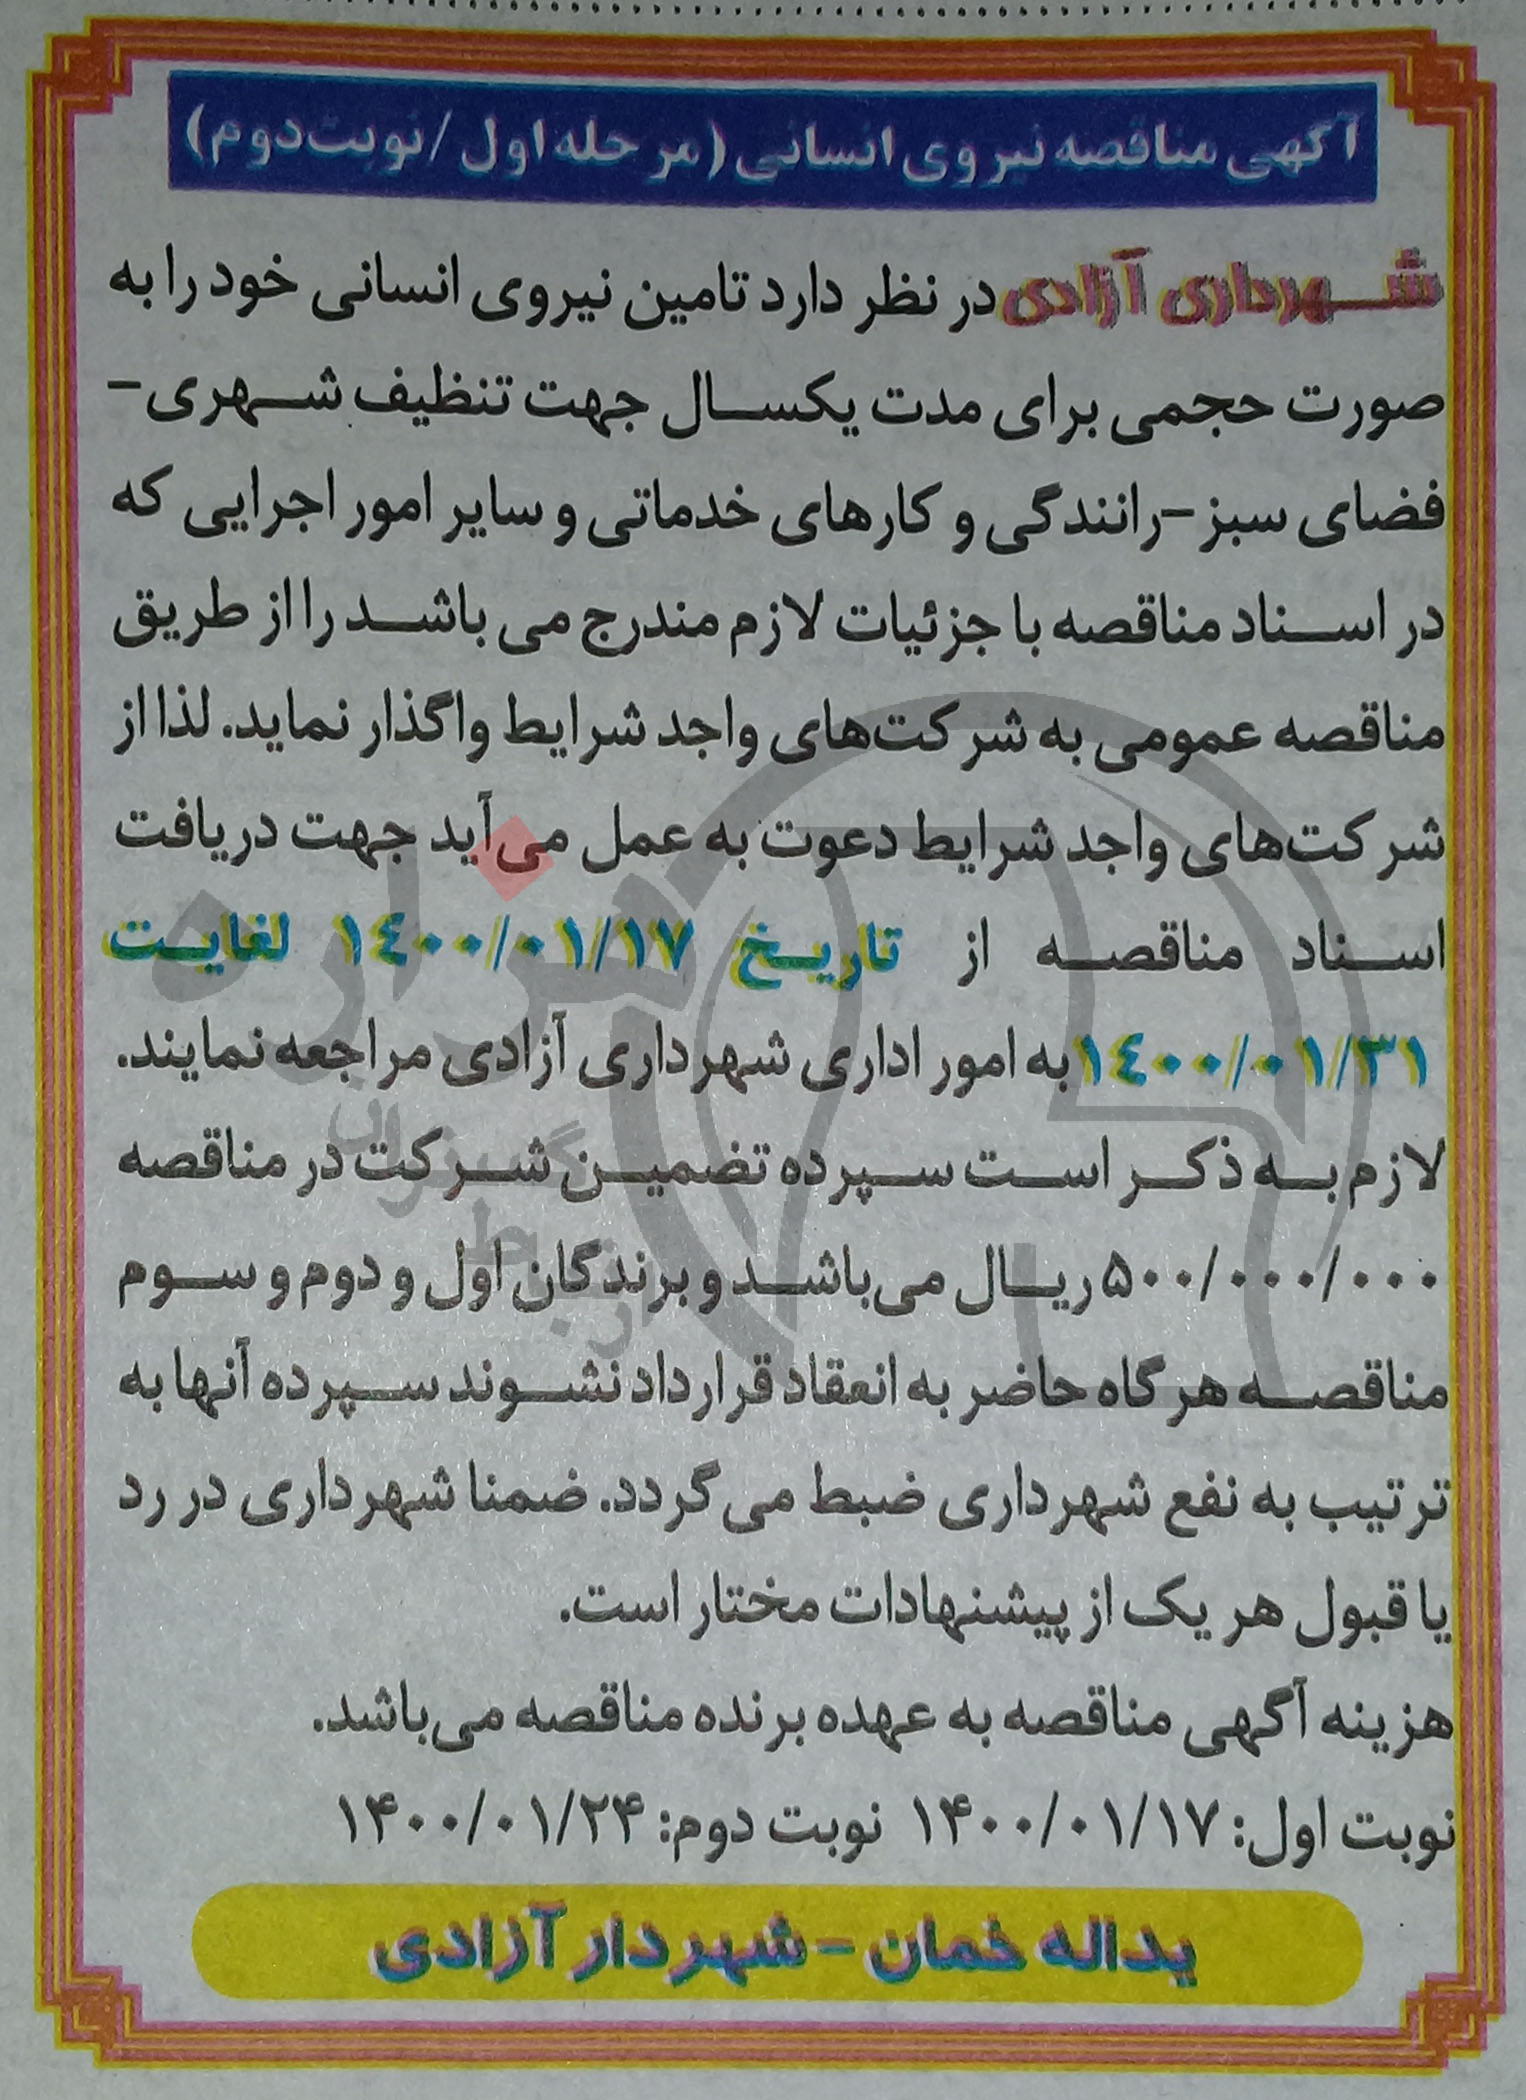 آگهی مناقصه نیروی انسانی (مرحله اول / نوبت دوم)
شهرداری آزادی در نظر دارد تامین نیروی انسانی خود را به
صورت حجمی برای مدت یکسال جهت تنظیف شهری-
فضای سبز-رانندگی و کارهای خدماتی و سایر امور اجرایی که
در اسناد مناقصه با جزئیات لازم مندرج می باشد را از طریق
مناقصه عمومی به شرکت‌های واجد شرایط واگذار نماید. لذا از
شرکت‌های واجد شرایط دعوت به عمل می‌آید جهت دریافت
اسناد مناقصه از تاریخ ۱٤۰۰/۰۱/۱۷ لغایت
۱٤۰۰/۰۱/۳۱ به امور اداری شهرداری آزادی مراجعه نمایند.
لازم به ذکر است سپرده تضمین شرکت در مناقصه
۵۰۰/۰۰۰/۰۰۰ ریال می‌باشد و برندگان اول و دوم و سوم
مناقصه هرگاه حاضر به انعقاد قرارداد نشوند سپرده آنها به
ترتیب به نفع شهرداری ضبط می‌گردد. ضمنا شهرداری در رد
یا قبول هر یک از پیشنهادات مختار است.
هزینه آگهی مناقصه به عهده برنده مناقصه می‌باشد.
نوبت اول: ۱۴۰۰/۰۱/۱۷ نوبت دوم: ۱۴۰۰/۰۱/۲۴
یداله خمان - شهردار آزادی